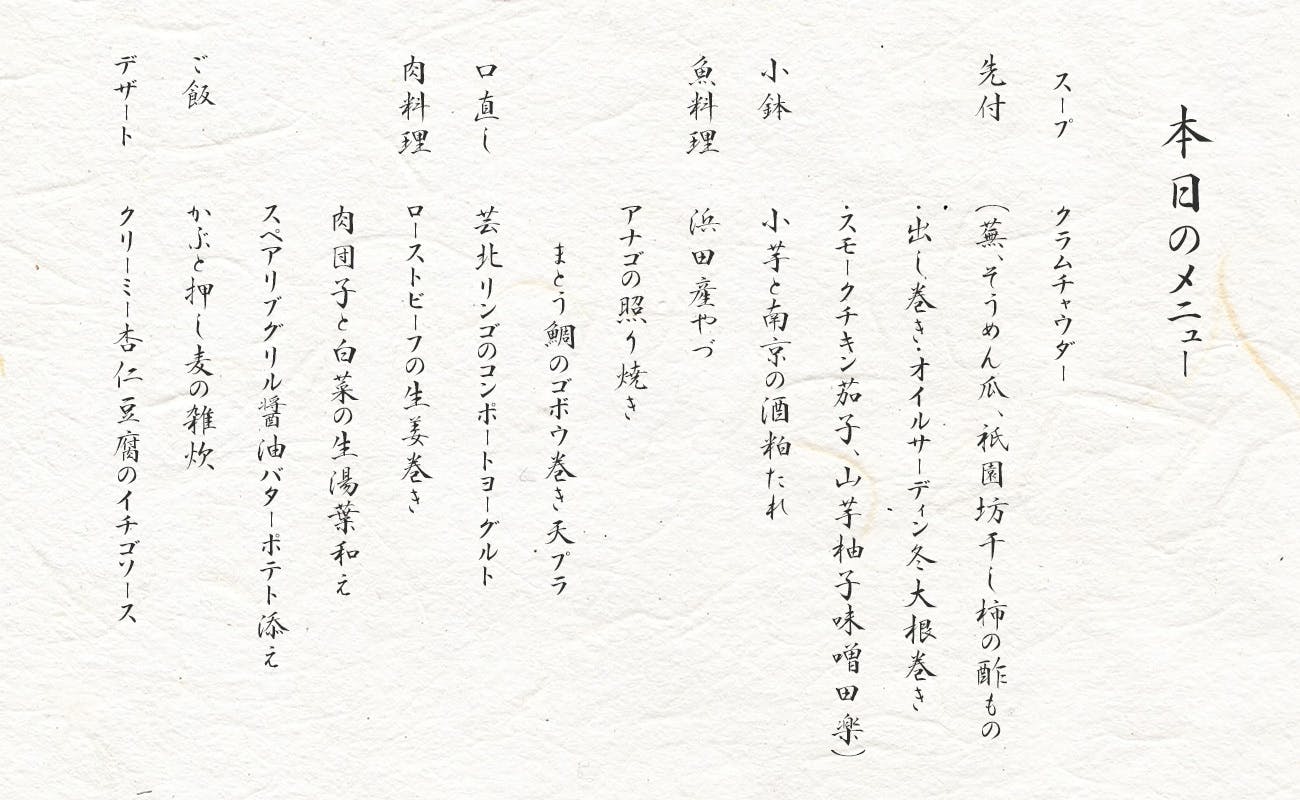 本日のメニュー
スープ　クラムチャウダー
先付　（蕪、そうめん瓜、祇園坊干し柿の酢もの
・出し巻き・オイルサーディン冬大根巻き
・スモークチキン茄子、山芋柚子味噌田楽）
小鉢　小芋と南京の酒粕たれ
魚料理　浜田産やづ
アナゴの照り焼き
まとう鯛のゴボウ巻き天プラ
口直し　芸北リンゴのコンポートヨーグルト
肉料理　ローストビーフの生姜巻き
肉団子と白菜の生湯葉和え
スペアリブグリル醤油バターポテト添え
ご飯　かぶと押し麦の雑炊
デザート　クリーミー杏仁豆腐のイチゴソース